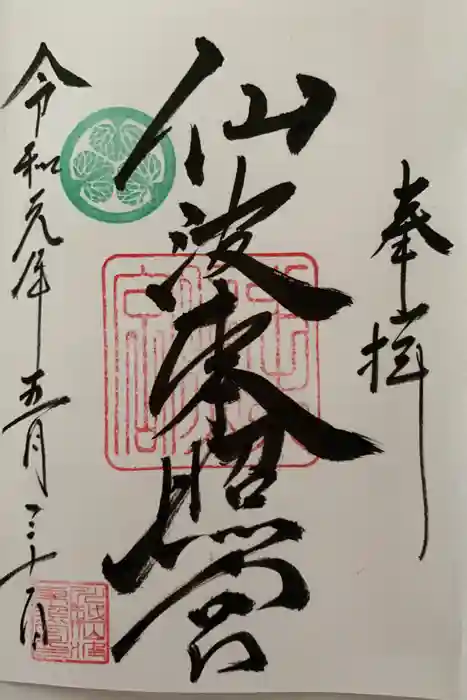 奉拝
仙波東照宮
令和元年五月三十日